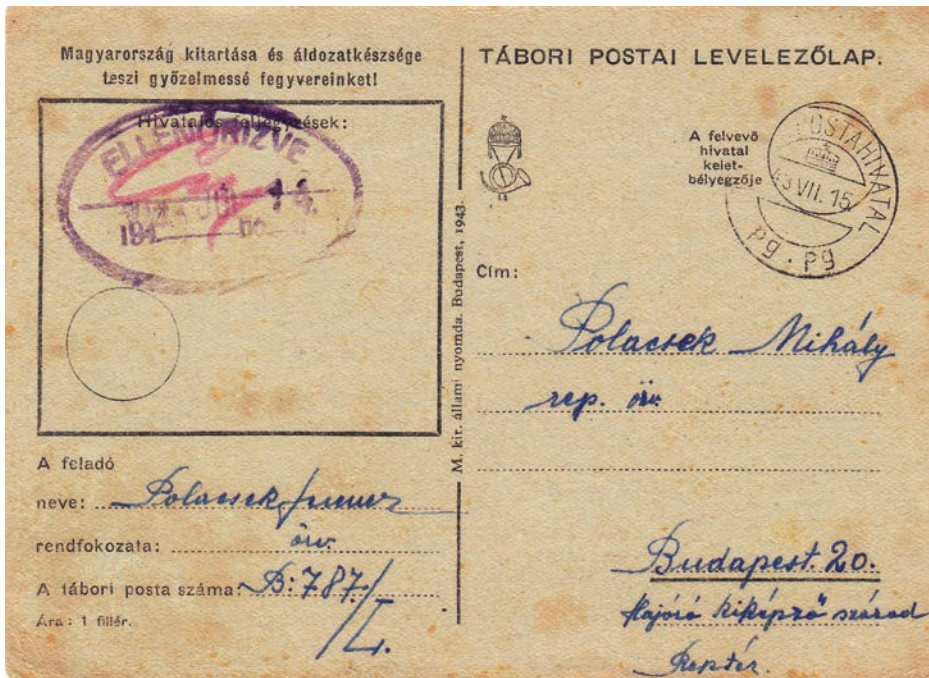 Magyarország kitartása és áldozatkészsége
teszi győzelmessé fegyvereinket!
Hivatalos feljegyzések:
ELLENŐRIZVE
194
A feladó
neve: Polacsek
rendfokozata: őrv.
A tábori posta száma: B: 787./I.
Ára: 1 fillér.
M. kir. állami nyomda. Budapest, 1943.
TÁBORI POSTAI LEVELEZŐLAP.
A felvevő
hivatal
kelet-
bélyegzője
POSTAHIVATAL
43 VII. 15
Pg. Pg
Cím:
Polacsek Mihály
rep. őrv.
Budapest. 20.
Hajózó kiképző század
Reptér.